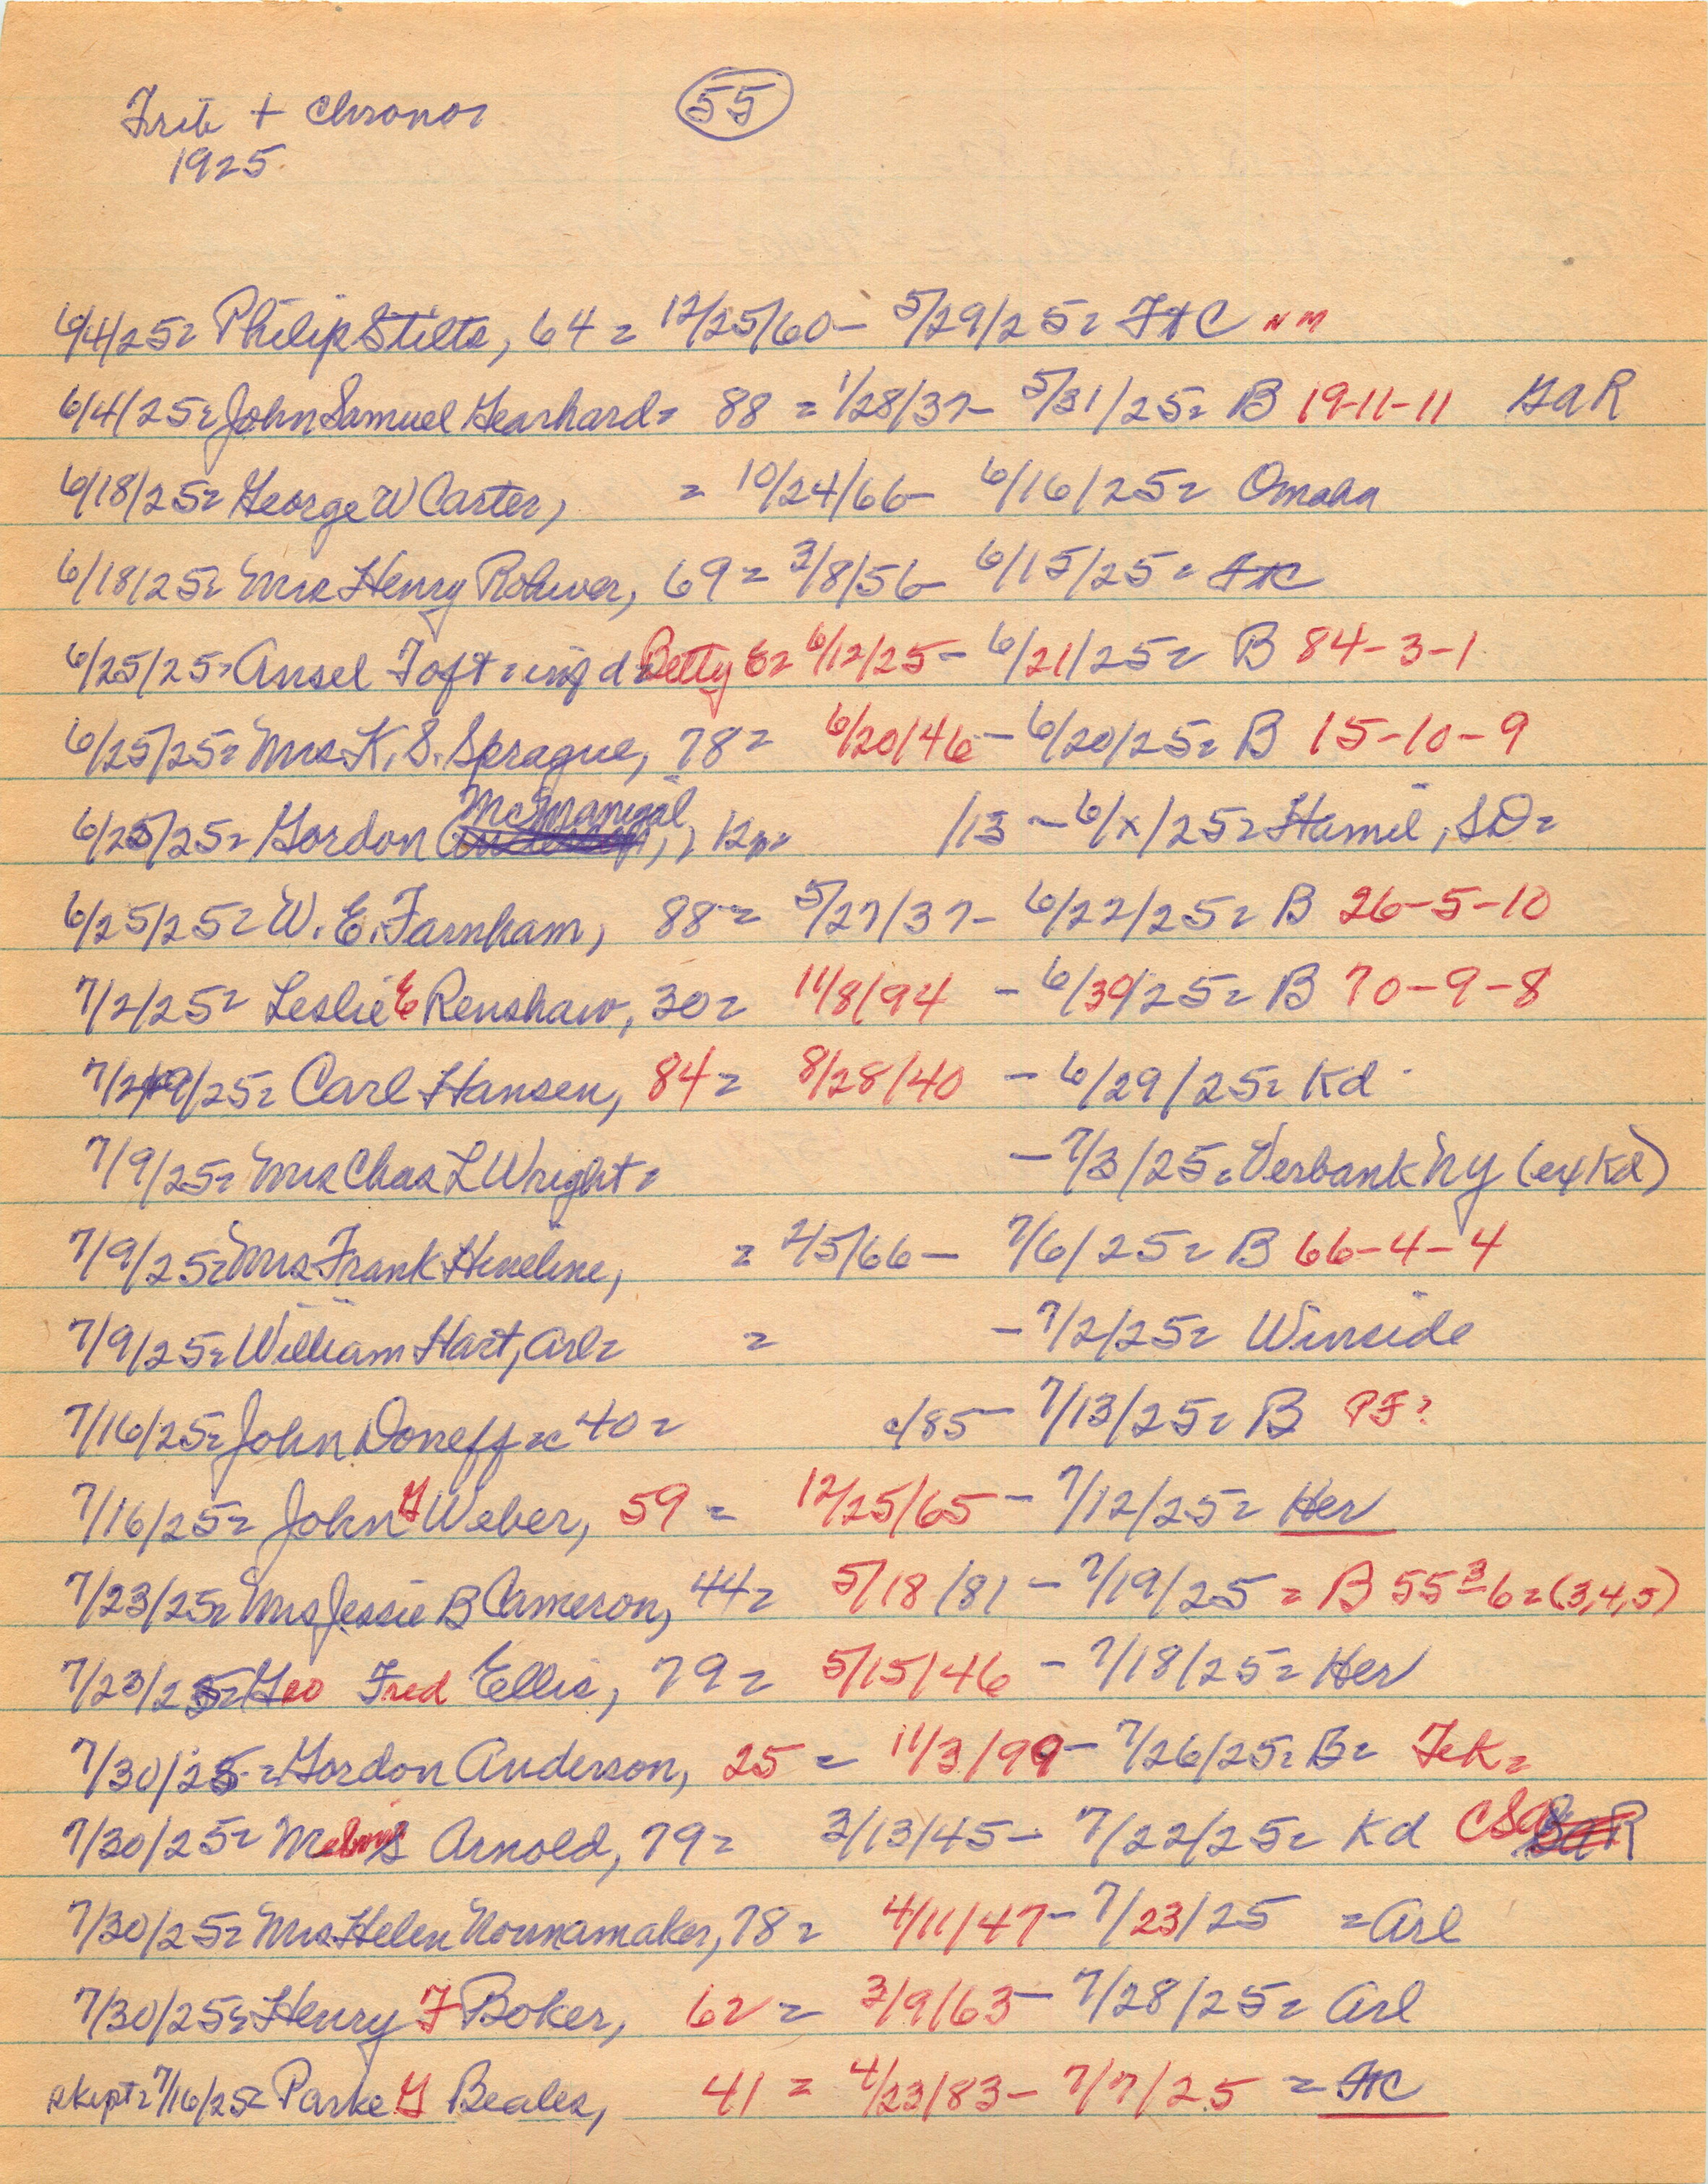 Trib + Chronos
1925
55
6/4/25= Philip Stilts, 64 = 12/25/60 - 5/29/25= FtC NM
6/4/25= John Samuel Gearhard= 88 = 1/28/37- 5/31/25= B 19-11-11 GAR
6/18/25= George W Carter, = 10/24/66- 6/16/25= Omaha
6/18/25= Mrs Henry Rohwer, 69 = 3/8/56- 6/15/25= FtC
6/25/25= Ansel Toft = inf d= Betty E= 6/12/25- 6/21/25= B 84-3-1
6/25/25= Mrs K. S. Sprague, 78= 6/20/46- 6/20/25= B 15-10-9
6/25/25= Gordon McManigal, 12 /13 - 6/x/25= Hamil, SD=
6/25/25= W. E. Farnham, 88= 5/27/37- 6/22/25= B 26-5-10
7/2/25= Leslie E Renshaw, 30= 11/8/94 - 6/30/25= B 70-9-8
7/2+9/25= Carl Hansen, 84= 8/28/40 - 6/29/25= Kd
7/9/25= Mrs Chas L Wright= - 7/3/25= Verbank NY (ex Kd)
7/9/25= Mrs Frank Hineline, = 2/5/66- 7/6/25= B 66-4-4
7/9/25= William Hart, Arl= = - 7/2/25= Winside
7/16/25= John Doneff =c 40= c/85- 7/13/25= B PF?
7/16/25= John G Weber, 59 = 12/25/65- 7/12/25= Her
7/23/25= Mrs Jessie B Cameron, 44= 5/18/81 - 7/19/25 = B 55-3-6=(3,4,5)
7/23/25= Geo Fred Ellis, 79= 5/15/46 - 7/18/25= Her
7/30/25= Gordon Anderson, 25 = 11/3/99- 7/26/25= B= Tek=
7/30/25= Melvin S Arnold, 79= 3/13/45- 7/22/25= Kd CSA GAR
7/30/25= Mrs Helen Nornamaker, 78= 4/11/47- 7/23/25 =Arl
7/30/25= Henry F Boker, 62 = 3/9/63- 7/28/25= Arl
skipt= 7/16/25= Parke G Beales, 41 = 4/23/83- 7/7/25 = FtC